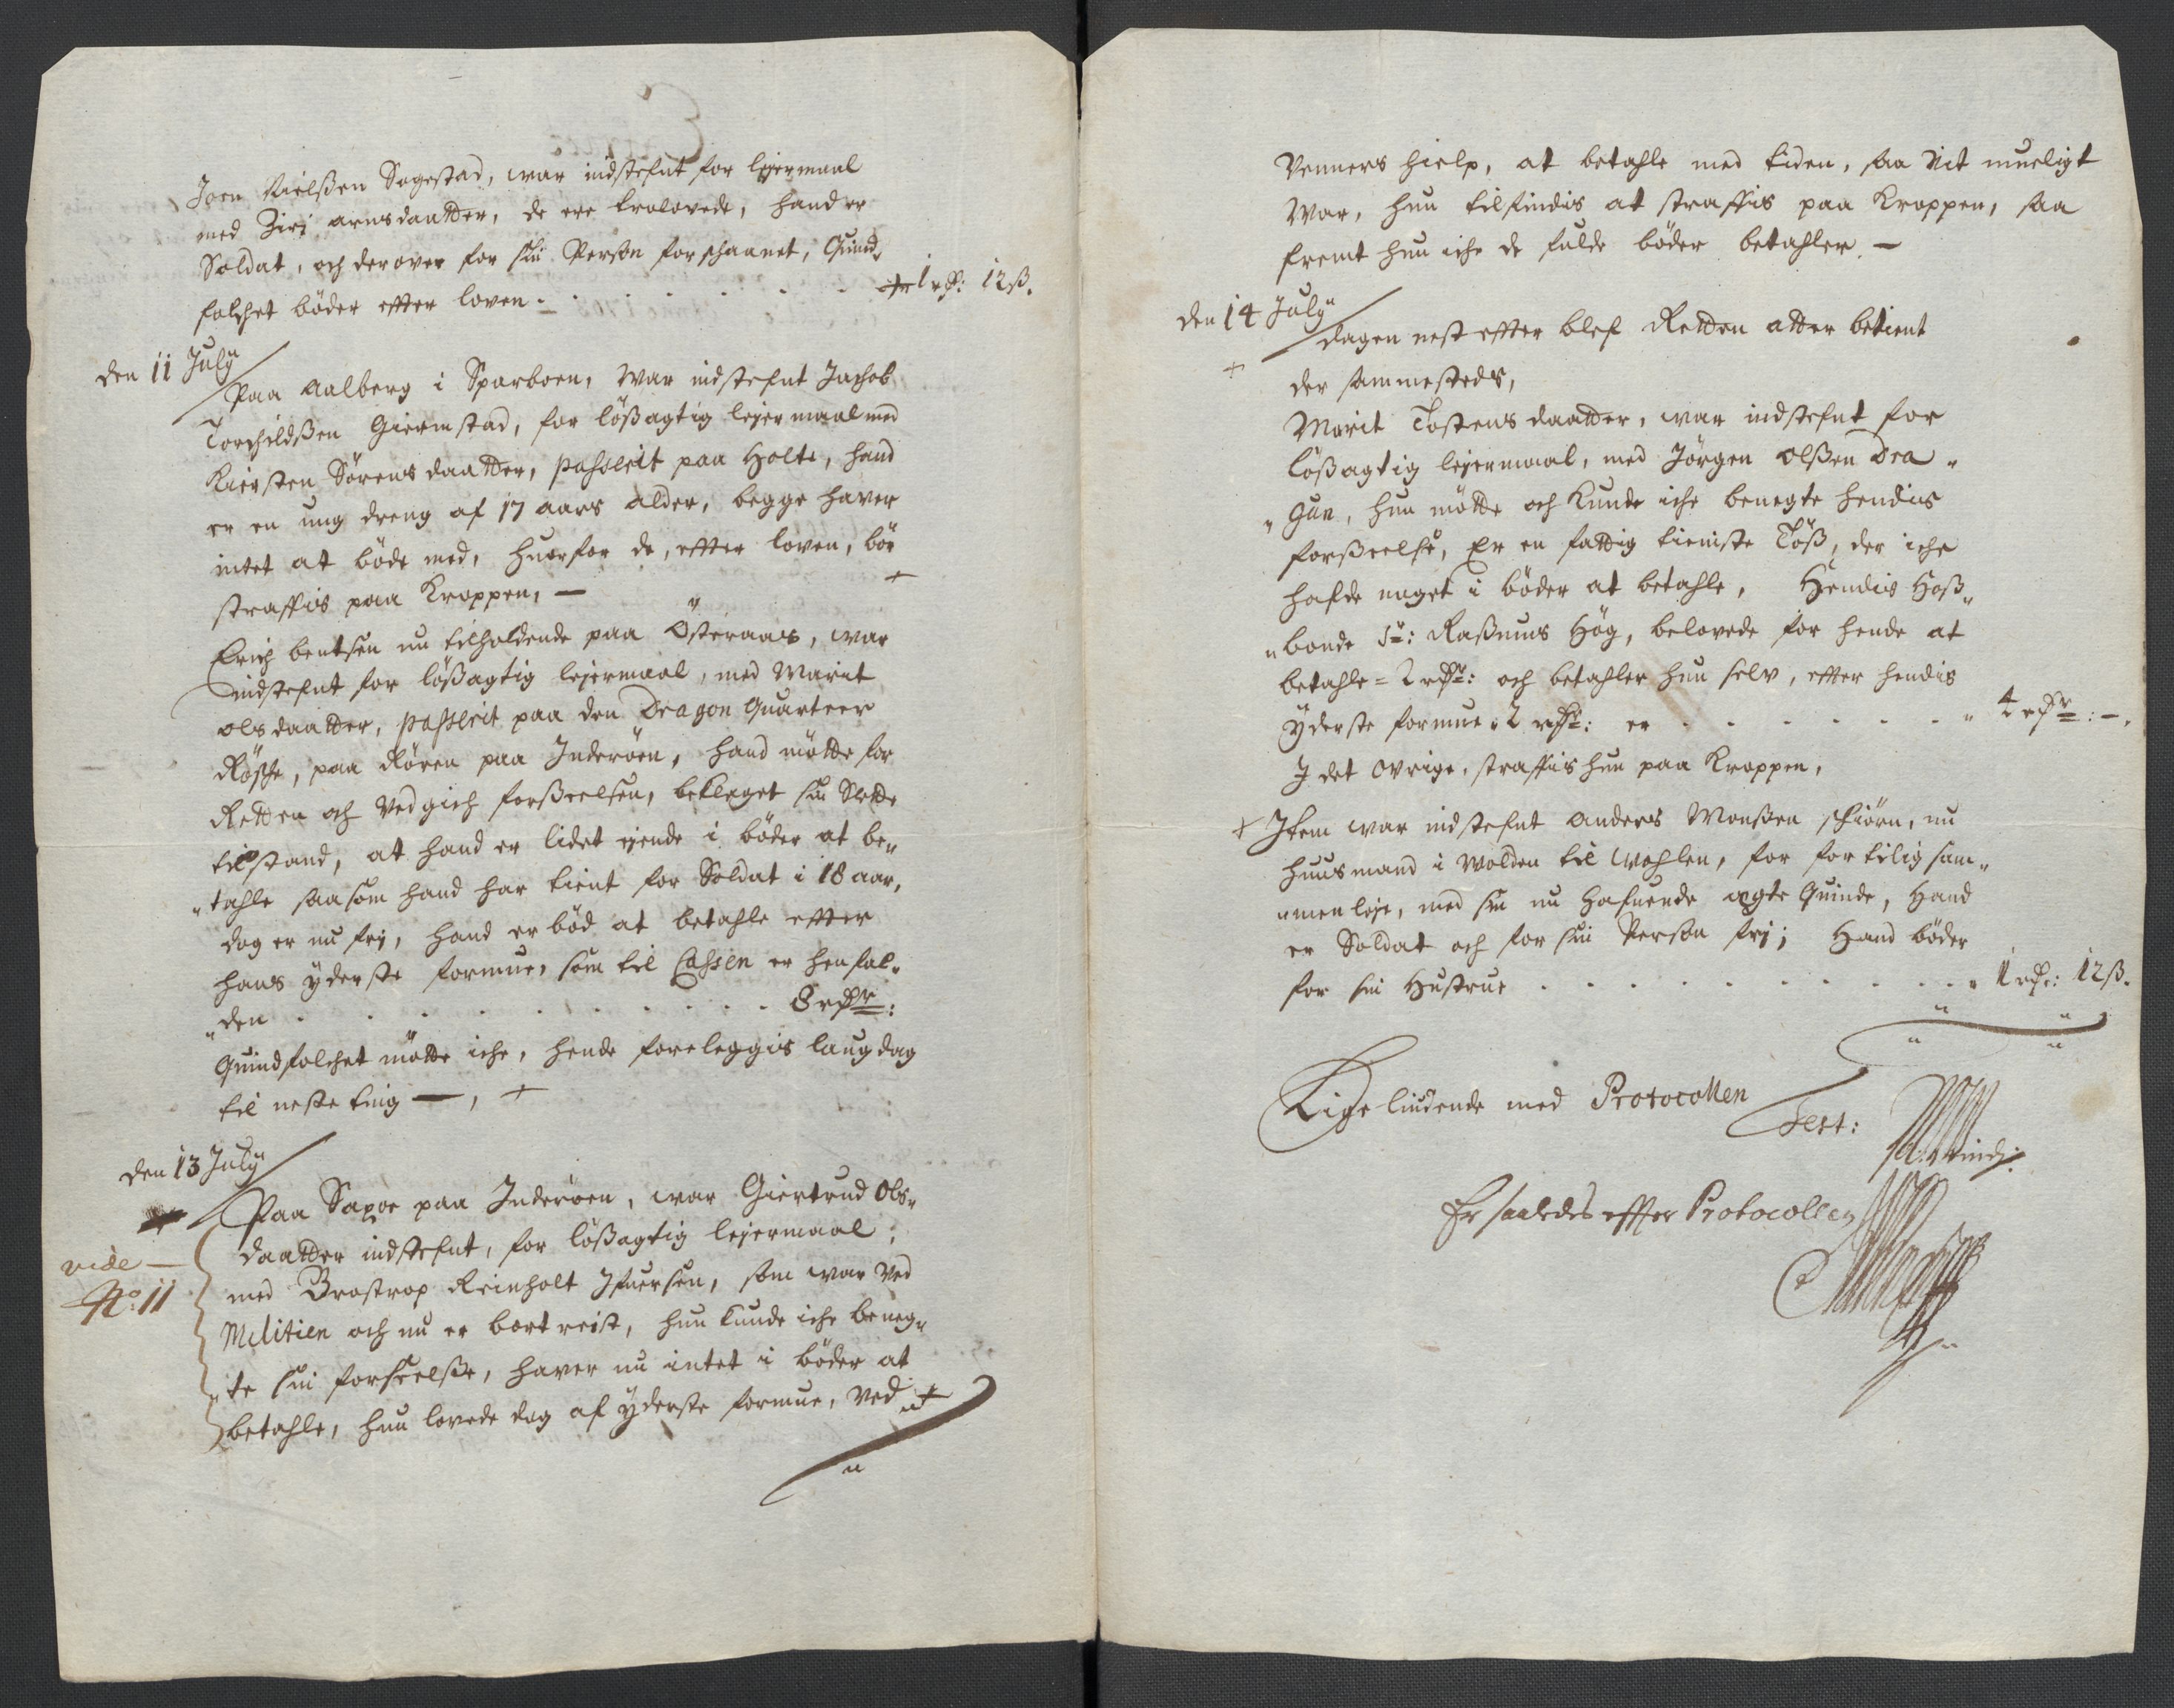 Joen Nielßen Sogstad, war indstefnt for lejermaal
med Ziri arnsdaatter, de ere trolovede, hand er
Soldat, och derover for sin Person forschaanet, Quind-
folchet bøder effter loven . . . . . . . 1 rdr: 12 ß.
den 11 July
Paa Aalberg i Sparboen, War indstefnt Jachob
Torchildßen Giermstad, for løßagtig lejermaal med
Kiersten Sørensdaatter, passerit paa Holte, hand
er en ung dreng af 17 aars alder, begge haver
intet at bøde med, huorfor de, effter loven, bør
straffis paa Kroppen, —
Erich bentsen nu tilholdende paa Østeraas, war
indstefnt for løßagtig lejermaal, med Marit
olsdaatter, passerit paa den Dragon Quarteer
Røsche, paa Røren paa Inderøen, hand møtte for
Retten och Vedgich forßeelsen, beklaget sin Slette
tilstand, at hand er lidet ejende i bøder at be„
„tahle saasom hand har tient for Soldat i 18 aar,
dog er nu frj, hand erbød at betahle effter
hans yderste formue, som til Cassen er henfal„
„den . . . . . . . . . . . 8 rdr:
Quindfolchet møtte iche, hende foreleggis laugdag
til neste ting —, +
den 13 July
Paa Saxoe paa Inderøen, war Giertrud Ols„
daatter indstefnt, for løßagtig lejermaal,
vide —
No: 11
med Brostrop Reinholt Ifuersen, som war Ved
Militien och nu er bortreist, hun kunde iche beneg„
„te sin forseelße, haver nu intet i bøder at
betahle, hun lovede dog af yderste formue, Ved
Venners hielp, at betahle med tiden, saa Vit mueligt
War, hun tilfindis at straffis paa Kroppen, saa
fremt hun iche de fulde bøder betahler. —
den 14 July
Dagen nest effter blef Retten atter betient
der sammesteds,
Marit Tostensdaatter, war indstefnt for
løßagtig lejermaal, med Jørgen olßen Dra„
„gun, hun møtte och kunde iche benegte hendis
forßeelse, Er en fattig tieniste Tøß, der iche
hafde noget i bøder at betahle, Hendis Hoß„
„bonde Sr: Raßmus Høg, belovede for hende at
betahle = 2 rdr: och betahler hun selv, effter hendis
yderste formue 2 rdr: er . . . . . . . 4 rdr: —.
I det øvrige, straffis hun paa Kroppen,
+ Item war indstefnt Anders Monßen schiørn, nu
huusmand i Wolden til Wohlen, for fortilig sam„
„menleje, med sin nu hafuende ægte Quinde, Hand
er Soldat och for sin Person frj; Hand bøder
for sin Hustrue . . . . . . . . . . . 1 rdr: 12 ß.
Ligelindende med Protocollen
Test:
Er saaledes effter Protocollen